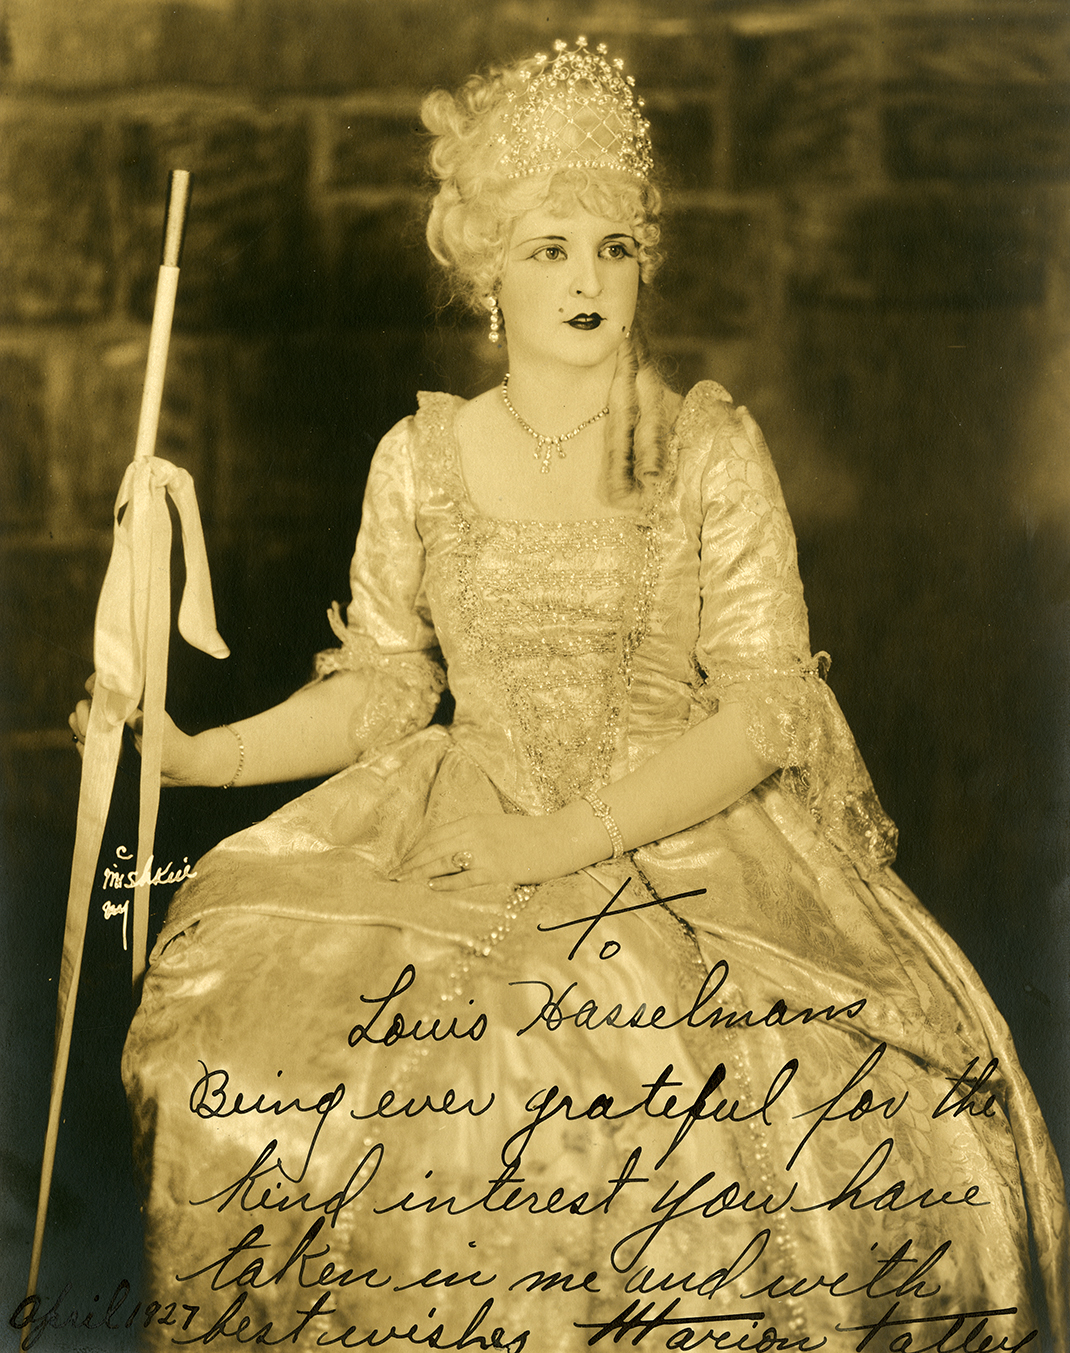 c
Mishkin
NY
To
Louis Hasselmans
Being ever grateful for the
kind interest you have
taken in me and with
best wishes Marion Talley
April 1927